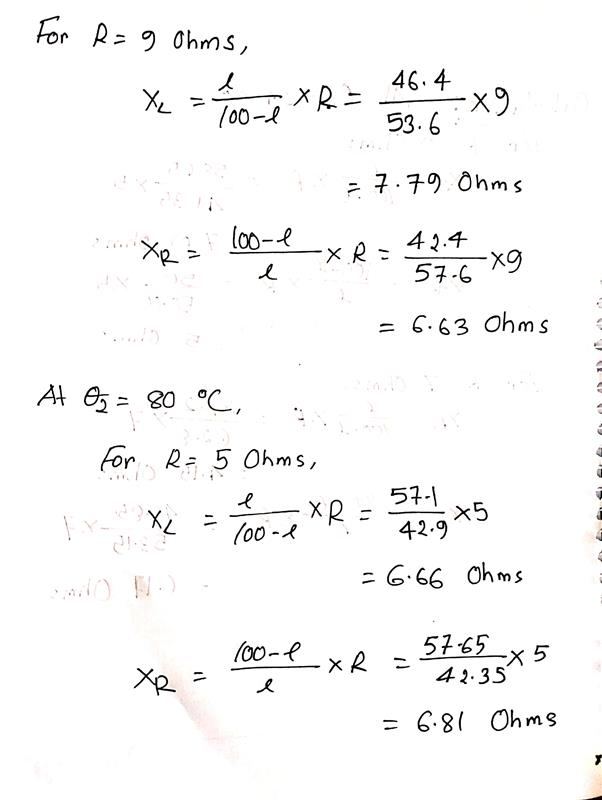 For R = 9 Ohms,
X_L = l/(100-l) × R = 46.4/53.6 × 9
= 7.79 Ohms
X_R = (100-l)/l × R = 42.4/57.6 × 9
= 6.63 Ohms
At θ₂ = 80 °C,
For R = 5 Ohms,
X_L = l/(100-l) × R = 57.1/42.9 × 5
= 6.66 Ohms
X_R = (100-l)/l × R = 57.65/42.35 × 5
= 6.81 Ohms